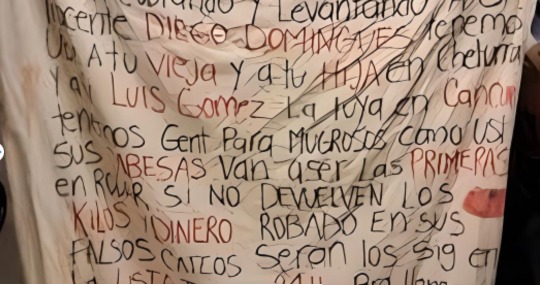 y Levantando
DIEGO DOMINGUES tenemo
A tu vieja y a tu HIJA en Chetuma
y a LUIS Gomez La tuya en Cancun
tenemos Gent Para MUGROSOS como Ust
SUS CABESAS Van aser Las PRIMERAS
en SI NO DEVUELVEN LOS
KILOS DINERO ROBADO EN SUS
FALSOS CATEOS Seran los Sig en
La LISTA